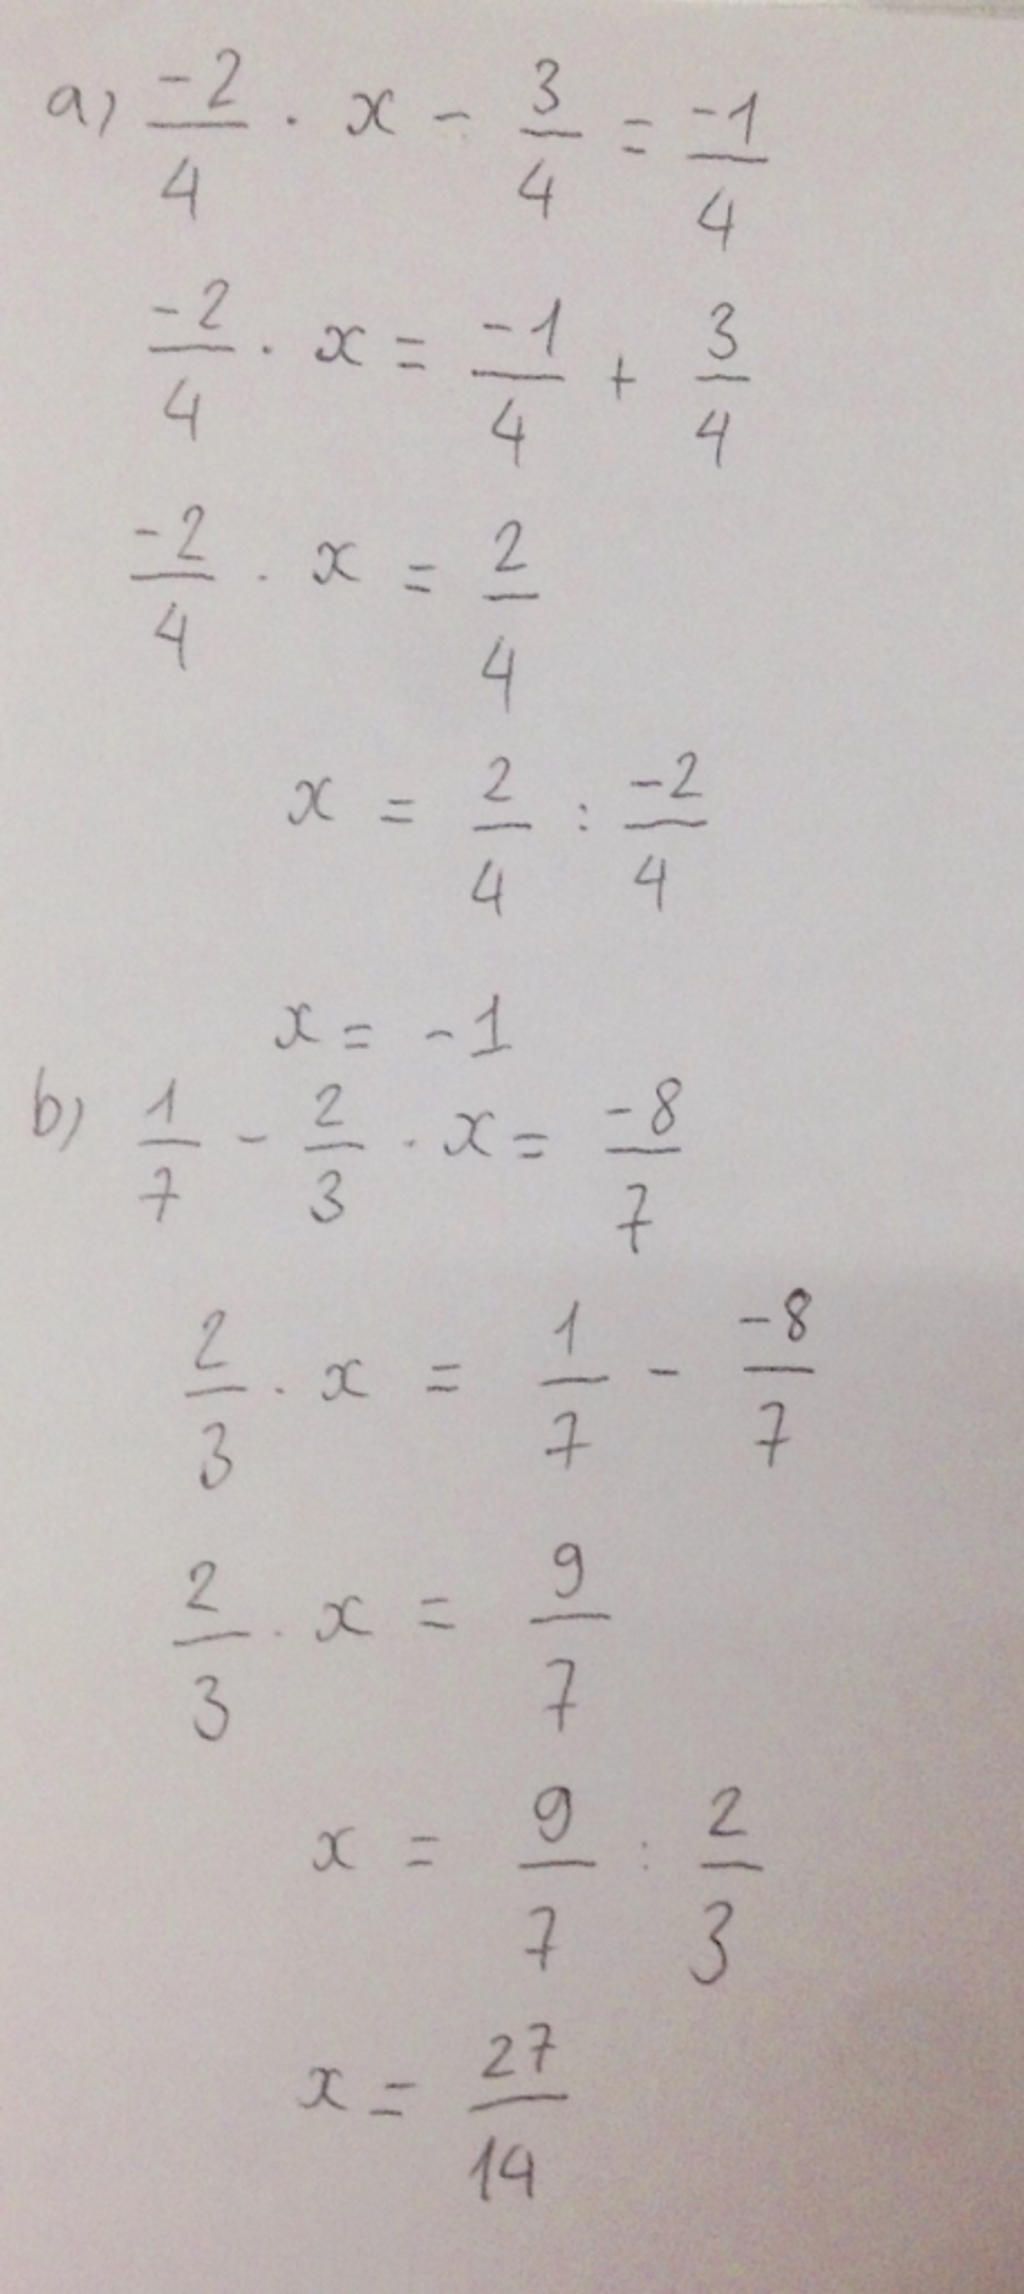 a) -2/4 · x - 3/4 = -1/4
-2/4 · x = -1/4 + 3/4
-2/4 · x = 2/4
x = 2/4 : -2/4
x = -1
b) 1/7 - 2/3 · x = -8/7
2/3 · x = 1/7 - -8/7
2/3 · x = 9/7
x = 9/7 : 2/3
x = 27/14